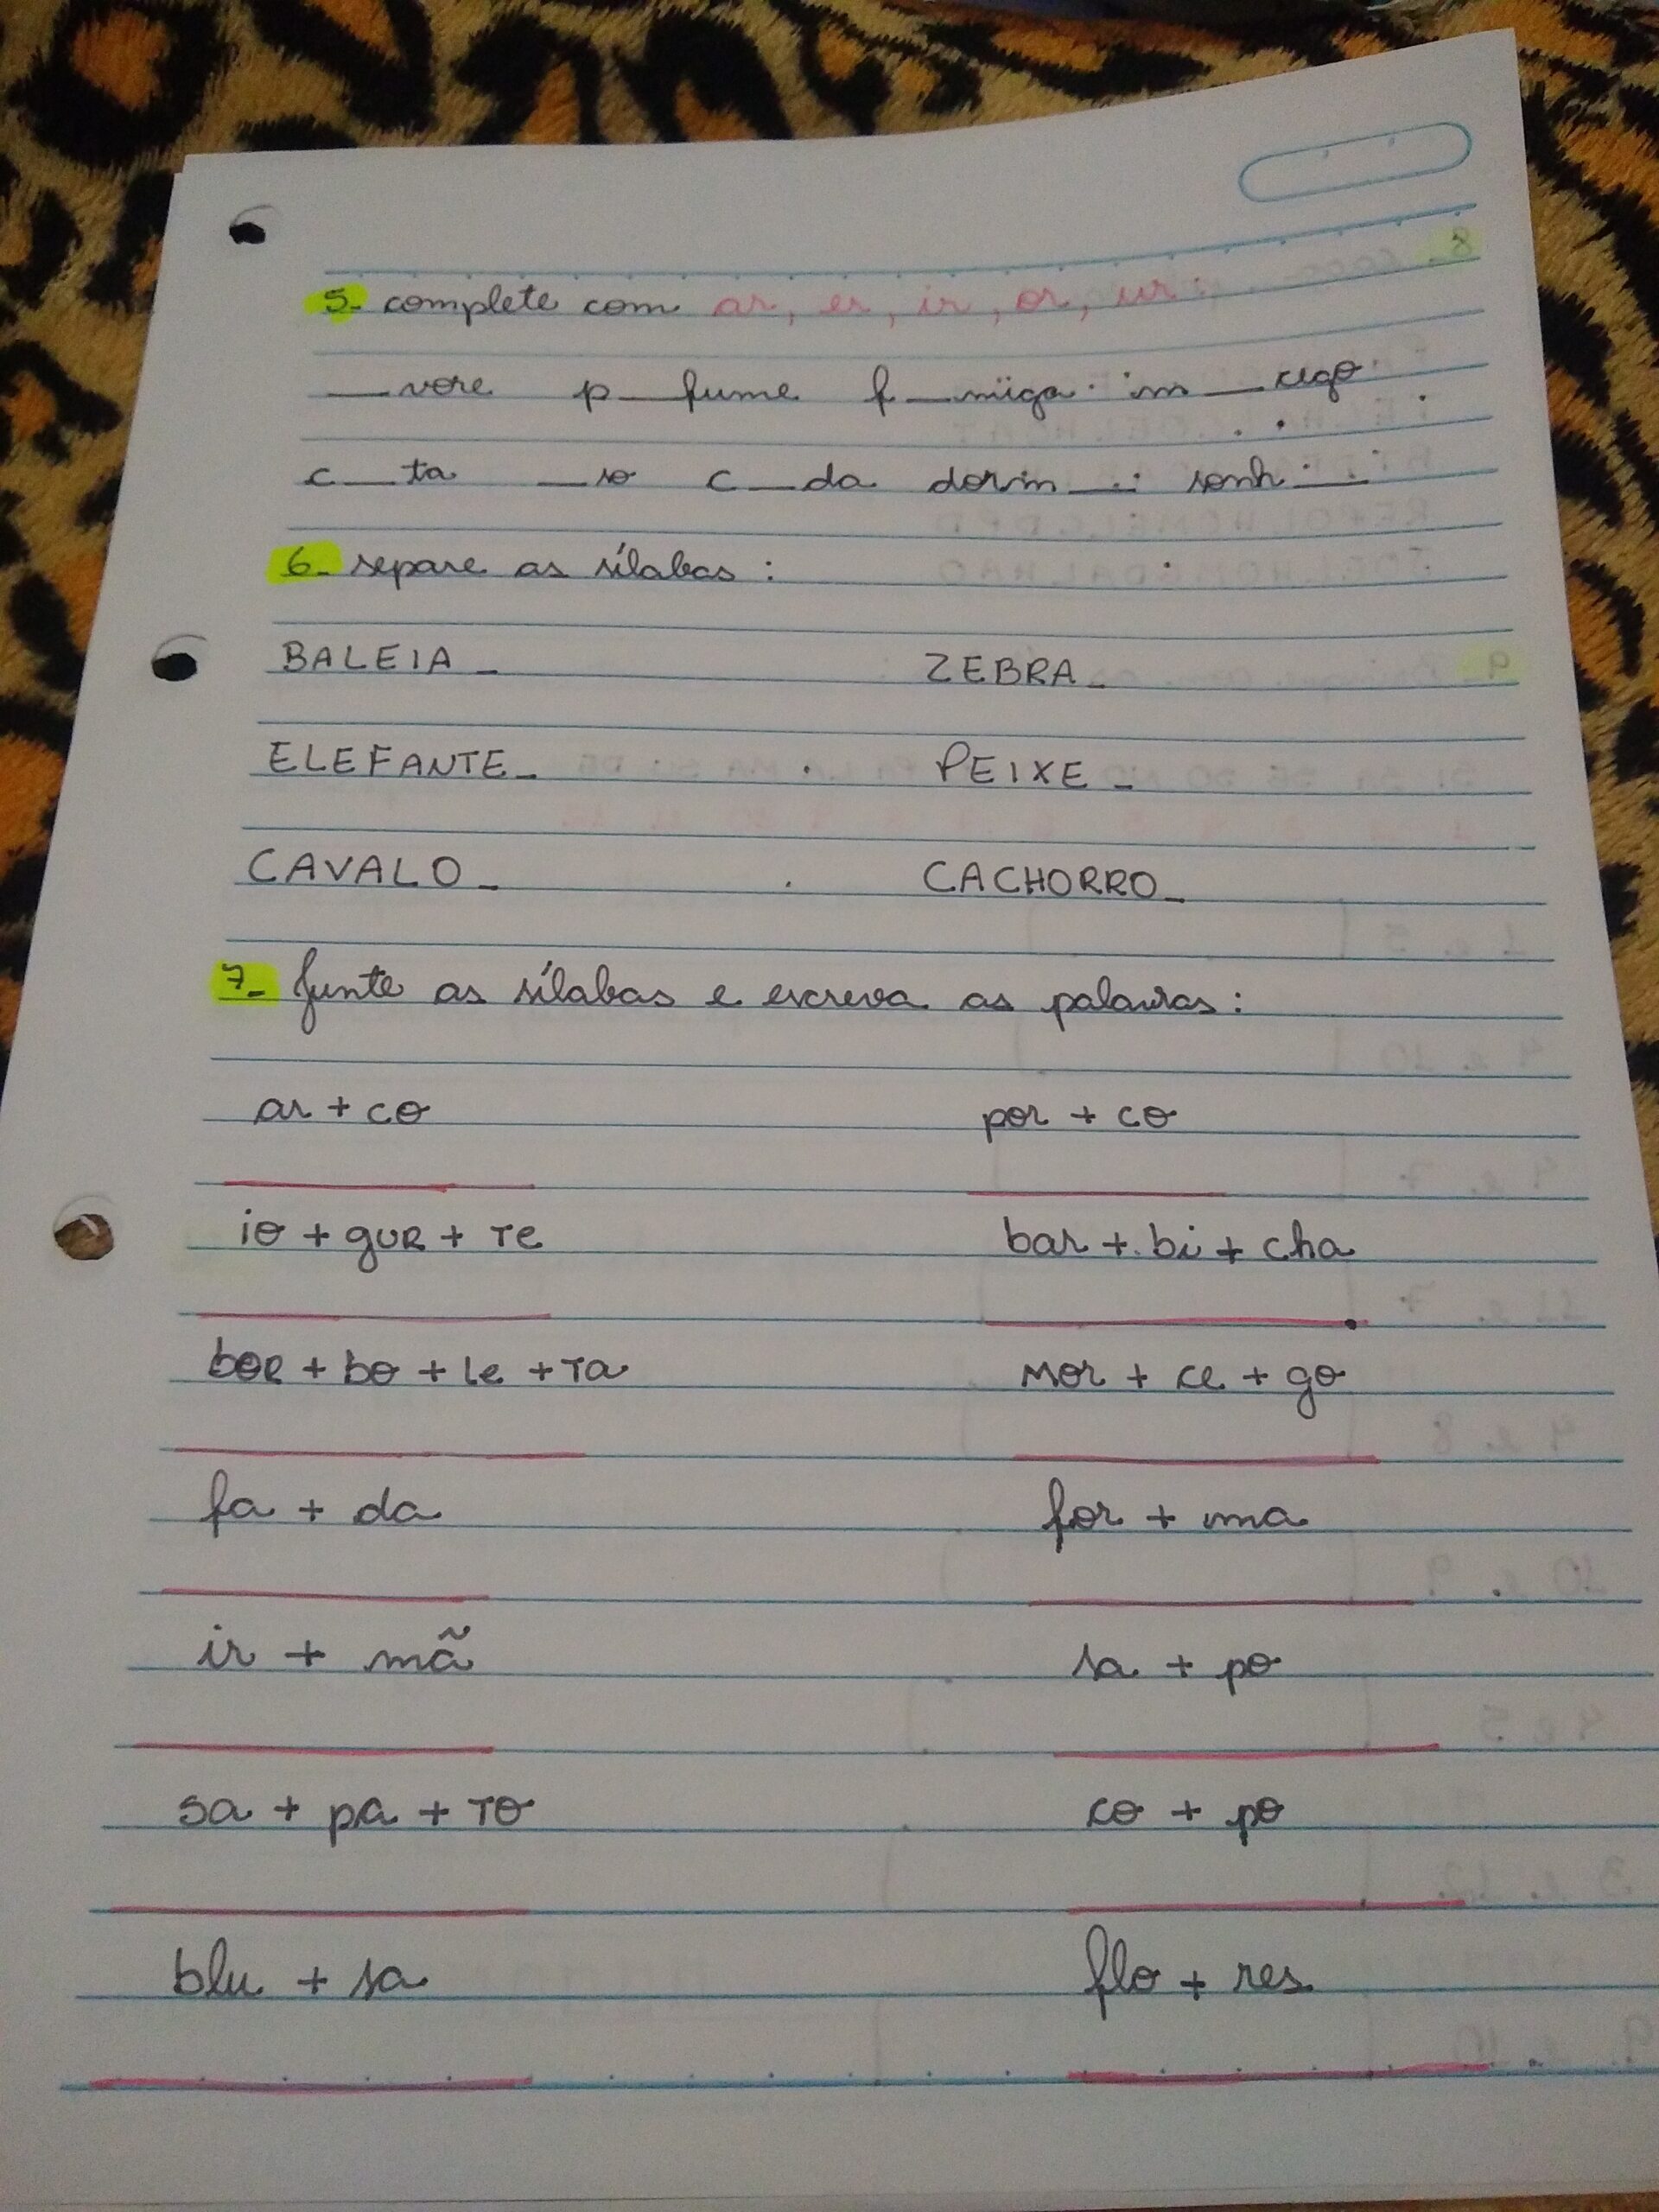 5- complete com ar, er, ir, or, ur:
__vore p__fume f__miga m__cego
c__ta __so c__da dorm__ sonh__
6- separe as sílabas:
BALEIA - ZEBRA -
ELEFANTE - PEIXE -
CAVALO - CACHORRO -
7- Junte as sílabas e escreva as palavras:
ar + co por + co
io + guR + Te bar + bi + cha
boR + bo + le + Ta mor + ce + go
fa + da for + ma
ir + mã sa + po
sa + pa + To co + po
blu + sa flo + res